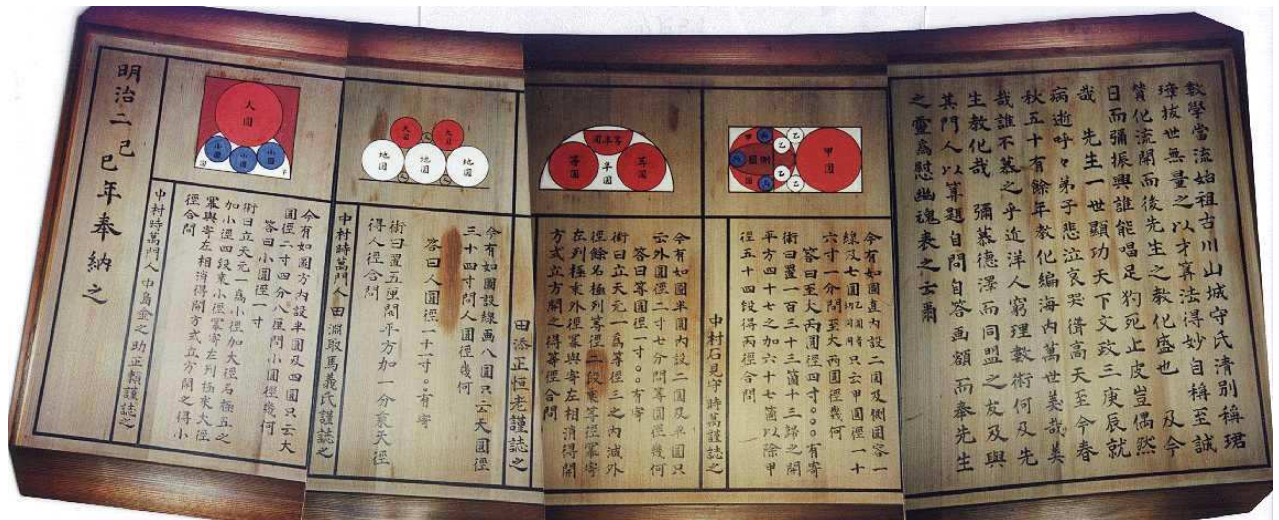 數學當流始祖古川山城守氏清別稱珺
璋抜世無量之以才算法得妙自稱至誠
賛化流開而後先生之教化盛也 及今
日而彌振興誰能唱足狗死止皮豈偶然
哉 先生一世顯功天下文政三庚辰就
病逝呼々弟子悲泣哀哭儕高天至今春
秋五十有餘年教化編海内萬世美哉美
哉誰不慕之乎近洋人窮理數術何及先
生教化哉 彌慕德澤而同盟之友及與
其門人以算題自問自答画額而奉先生
之霊為慰幽魂表之云爾
甲圓
乙
乙
乙
乙
丙
丙
丙
甲
側圓
今有如圖直内設二圓及側圓容一
線及七圓只云甲圓徑一十
六寸一分問至大丙圓徑幾何
答曰至大丙圓徑四寸〇〇〇有寄
術曰置一百三十三箇十三歸之開
平方四十七之加六十七箇以除甲
徑五十四段得丙徑合問
中村石見守時萬謹誌之
等圓
半圓
等圓
等圓
今有如圖半圓内設二圓及半圓只
云外圓徑二寸七分問等圓徑幾何
答曰等圓徑一寸〇有寄
術曰立天元一為等徑三之内減外
徑餘名極列等徑二段乗等徑冪寄
左列極乗外徑冪與寄左相消得開
方式立方開之得等徑合問
田添正恒老謹誌之
天圓
天圓
地圓
地圓
地圓
人
今有如圖設線画八圓只云天圓徑
三十四寸問人圓徑幾何
答曰人圓徑一十一寸〇有寄
術曰置五厘開平方加一分乗天徑
得人徑合問
中村時萬門人田淵取馬義氏謹誌之
大圓
小圓
小圓
小圓
今有如圖方内設半圓及四圓只云大
圓徑二寸四分八厘問小圓徑幾何
答曰小圓徑一寸
術曰立天元一為小徑加大徑名極五之
加小徑四段乗小徑冪寄左列極乗大徑
冪與寄左相消得開方式立方開之得小
徑合問
中村時萬門人中島金之助正頼謹誌之
明治二己巳年奉納之